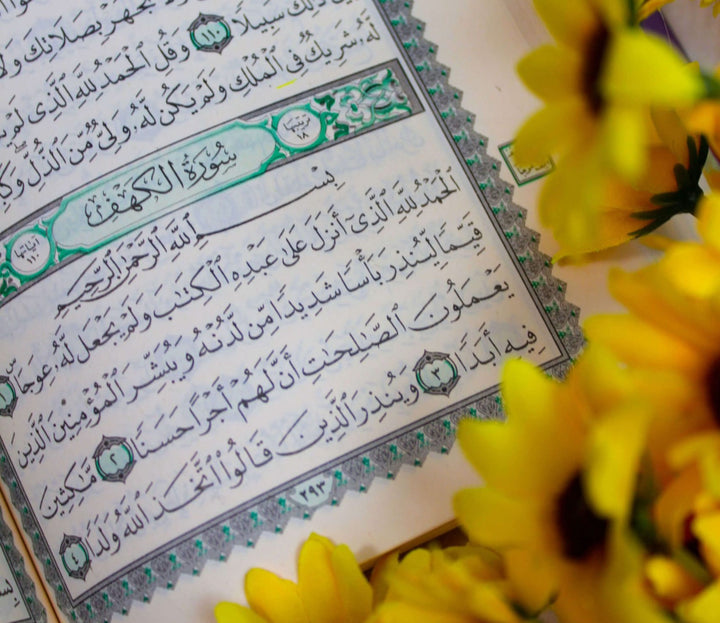 ذَٰلِكَ سَبِيلًا ١١٠ وَقُلِ ٱلْحَمْدُ لِلَّهِ ٱلَّذِى لَمْ
لَّهُۥ شَرِيكٌ فِى ٱلْمُلْكِ وَلَمْ يَكُن لَّهُۥ وَلِىٌّ مِّنَ ٱلذُّلِّ
ترتيبها ١٨ سُورَةُ الكَهْفِ آياتها ١١٠
بِسْمِ ٱللَّهِ ٱلرَّحْمَٰنِ ٱلرَّحِيمِ
ٱلْحَمْدُ لِلَّهِ ٱلَّذِىٓ أَنزَلَ عَلَىٰ عَبْدِهِ ٱلْكِتَٰبَ وَلَمْ يَجْعَل لَّهُۥ عِوَجَا ۜ ١
قَيِّمًا لِّيُنذِرَ بَأْسًا شَدِيدًا مِّن لَّدُنْهُ وَيُبَشِّرَ ٱلْمُؤْمِنِينَ ٱلَّذِينَ
يَعْمَلُونَ ٱلصَّٰلِحَٰتِ أَنَّ لَهُمْ أَجْرًا حَسَنًا ٢ مَّٰكِثِينَ
فِيهِ أَبَدًا ٣ وَيُنذِرَ ٱلَّذِينَ قَالُوا۟ ٱتَّخَذَ ٱللَّهُ وَلَدًا ٤
٢٩٣